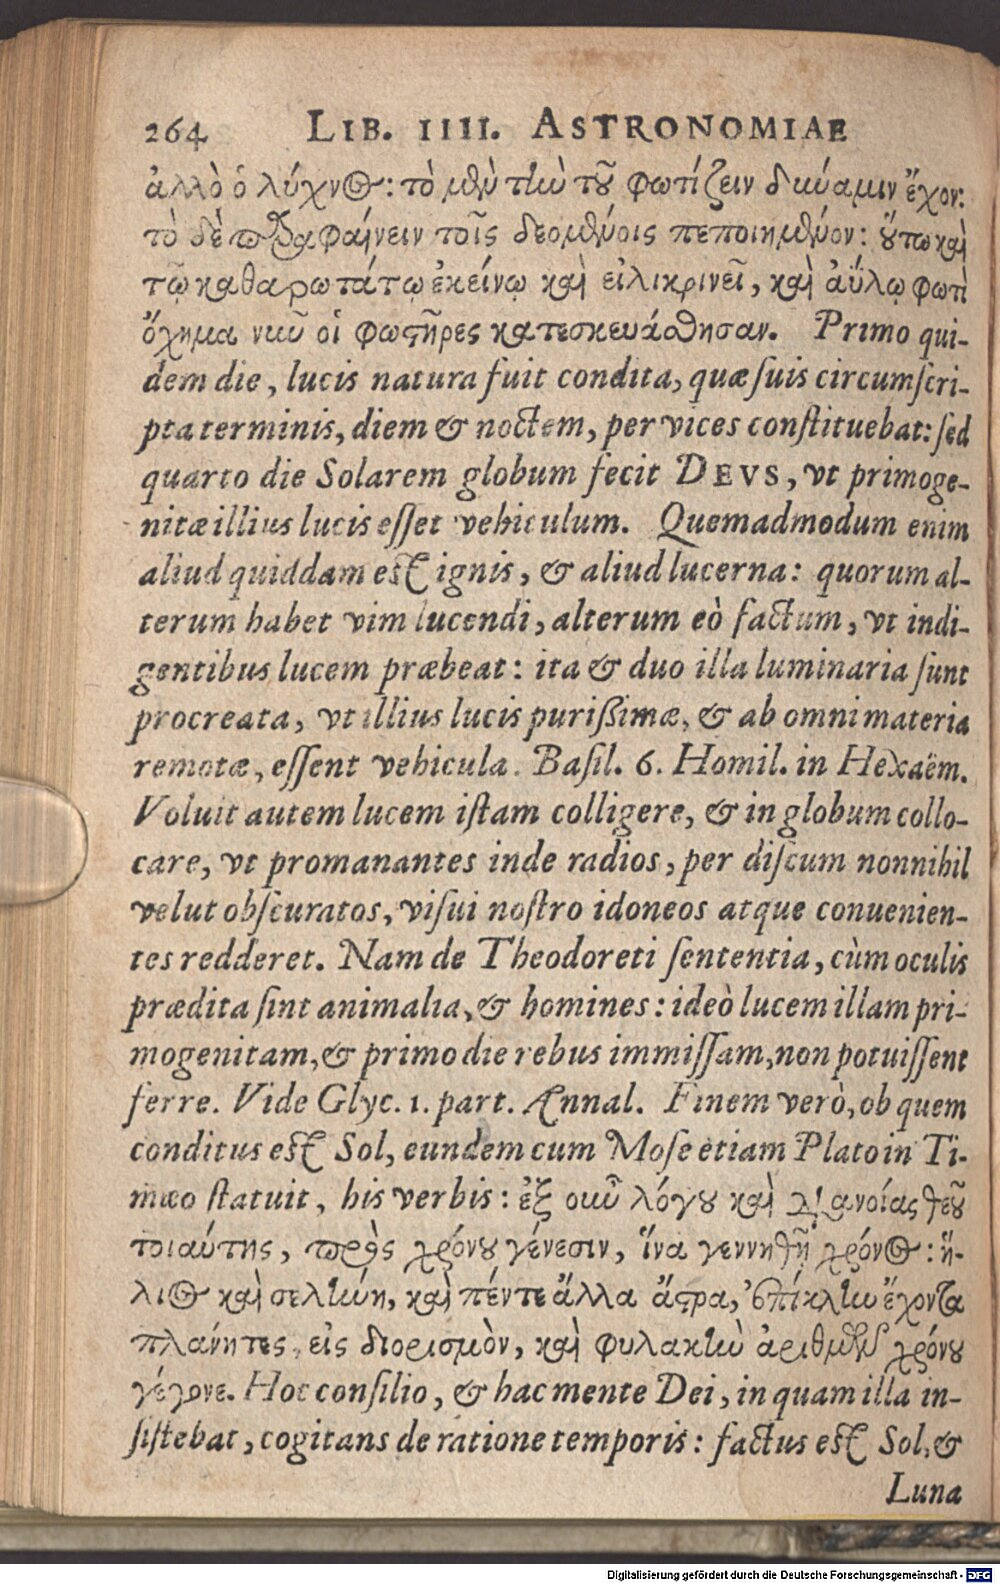 264 LIB. IIII. ASTRONOMIAE
ἀλλὸ ὁ λύχνος: τὸ μὲν τὴν τοῦ φωτίζειν δύναμιν ἔχον:
τὸ δὲ παραφαίνειν τοῖς δεομένοις πεποιημένον: οὕτω καὶ
τῷ καθαρωτάτῳ ἐκείνῳ καὶ εἰλικρινεῖ, καὶ ἀΰλῳ φωτὶ
ὄχημα νῦν οἱ φωστῆρες κατεσκευάσθησαν. Primo qui-
dem die, lucis natura fuit condita, quæ suis circumscri-
pta terminis, diem & noctem, per vices constituebat: sed
quarto die Solarem globum fecit DEVS, vt primoge-
nitæ illius lucis esset vehiculum. Quemadmodum enim
aliud quiddam est ignis, & aliud lucerna: quorum al-
terum habet vim lucendi, alterum eò factum, vt indi-
gentibus lucem præbeat: ita & duo illa luminaria sunt
procreata, vt illius lucis purissimæ, & ab omni materia
remotæ, essent vehicula. Basil. 6. Homil. in Hexaëm.
Voluit autem lucem istam colligere, & in globum collo-
care, vt promanantes inde radios, per discum nonnihil
velut obscuratos, visui nostro idoneos atque conuenien-
tes redderet. Nam de Theodoreti sententia, cùm oculis
prædita sint animalia, & homines: ideò lucem illam pri-
mogenitam, & primo die rebus immissam, non potuissent
ferre. Vide Glyc. 1. part. Annal. Finem verò, ob quem
conditus est Sol, eundem cum Mose etiam Plato in Ti-
mæo statuit, his verbis: ἐξ οὖν λόγου καὶ διανοίας θεοῦ
τοιαύτης, πρὸς χρόνου γένεσιν, ἵνα γεννηθῇ χρόνος: ἥ-
λιος καὶ σελήνη, καὶ πέντε ἄλλα ἄστρα, ἐπίκλην ἔχοντα
πλάνητες, εἰς διορισμὸν, καὶ φυλακὴν ἀριθμῶν χρόνου
γέγονε. Hoc consilio, & hac mente Dei, in quam illa in-
sistebat, cogitans de ratione temporis: factus est Sol, &
Luna
Digitalisierung gefördert durch die Deutsche Forschungsgemeinschaft - DFG